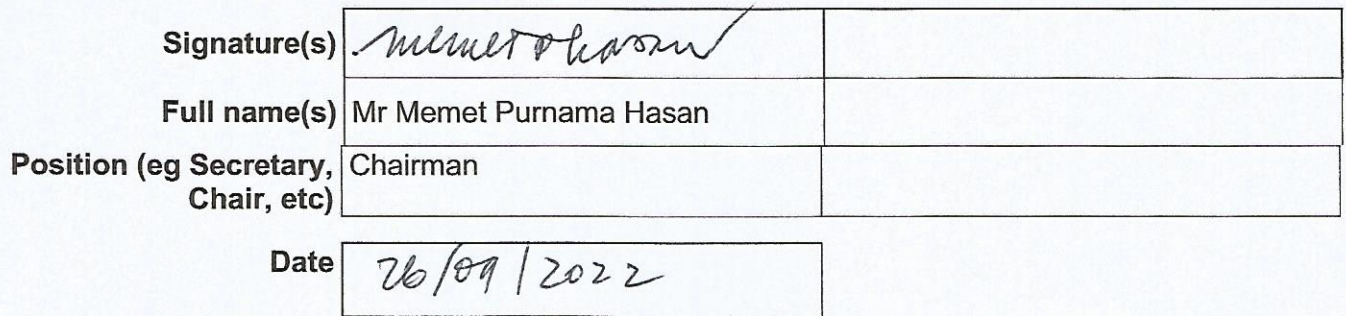 Signature(s) memet p hasan
Full name(s) Mr Memet Purnama Hasan
Position (eg Secretary, Chairman
Chair, etc)
Date 26/09/2022